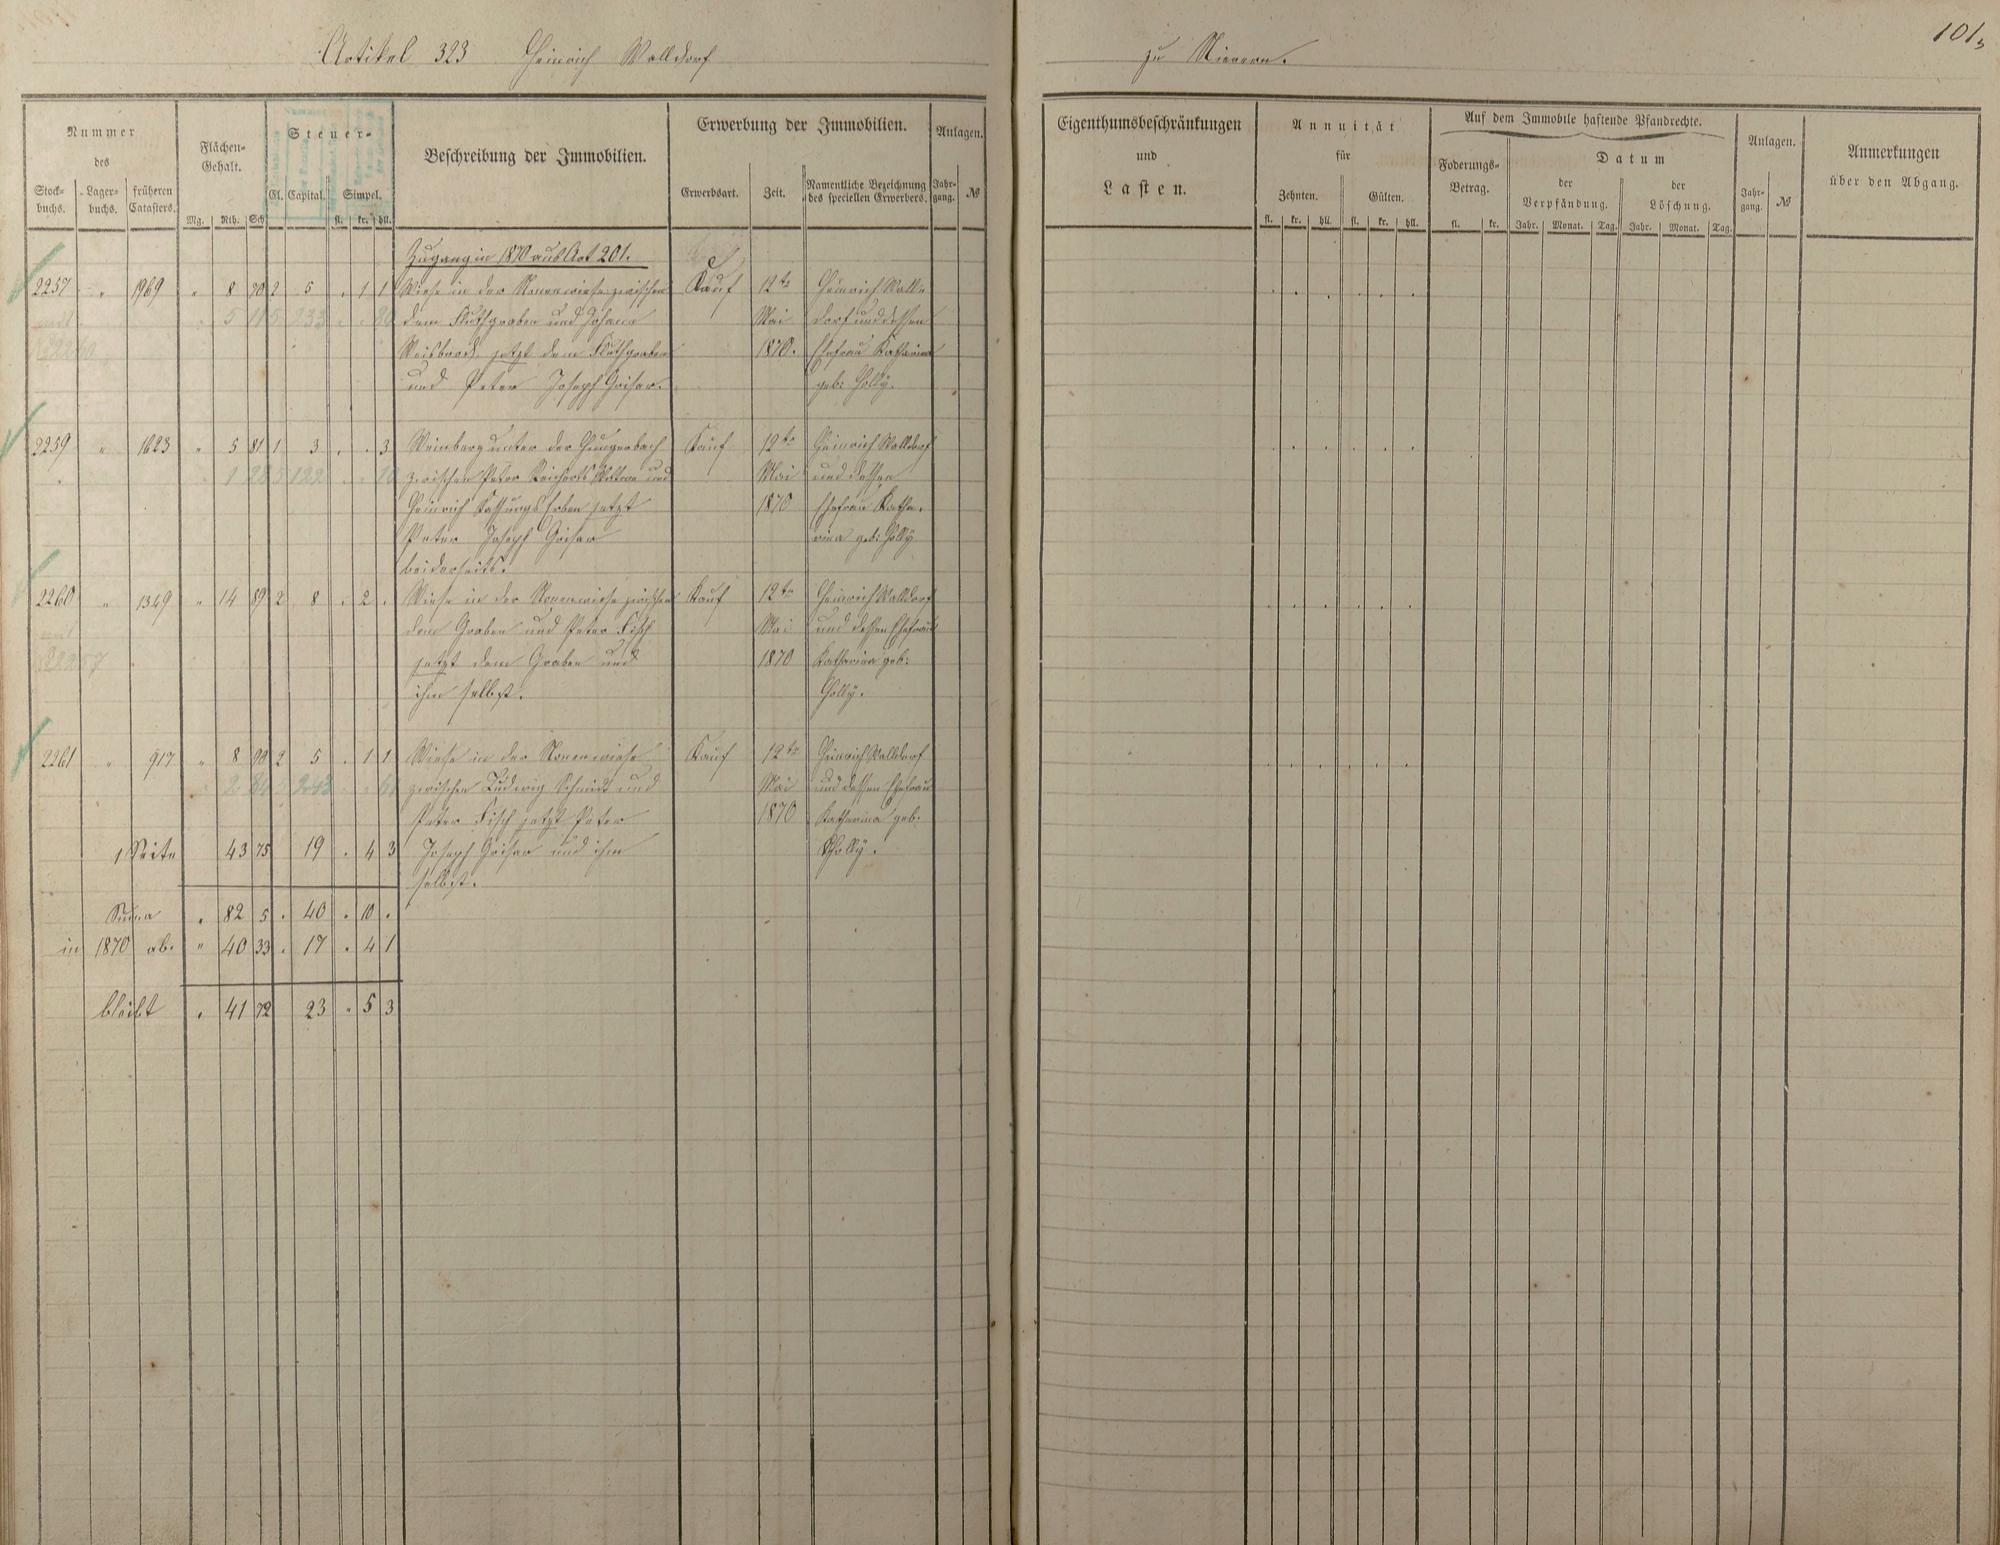 Artikel 323 Heinrich Walldorf
zu Nievern.
101
Nummer
des
Stock-buchs. Lager-buchs. früheren Catasters.
Flächen-Gehalt.
Mg. Rth. Sch
Steuer-
Cl. Capital. Simpel.
fl. kr. hll.
Beschreibung der Immobilien.
Erwerbung der Immobilien.
Erwerbsart. Zeit. Namentliche Bezeichnung des speciellen Erwerbers.
Anlagen.
Jahr-gang. №
Eigenthumsbeschränkungen
und
Lasten.
Annuität
für
Zehnten. Gülten.
fl. kr. hll. fl. kr. hll.
Auf dem Immobile haftende Pfandrechte.
Foderungs-Betrag.
fl. kr.
Datum
der Verpfändung. der Löschung.
Jahr. Monat. Tag. Jahr. Monat. Tag.
Anlagen.
Jahr-gang. №
Anmerkungen
über den Abgang.
Zugang in 1870 aus Art 201.
2257 " 1969 " 8 70 2 5 . 1 1 Wiese in der Nonnenwiese zwischen Kauf 12te Heinrich Wall-
5 11 5 233 dem Fluthgraben und Johann Mai dorf und dessen
Weisbrod, jetzt dem Fluthgraben 1870. Ehefrau Katharina
und Peter Joseph Grisar. geb: Holly.
2259 " 1623 " 5 81 1 3 . . 3 Weinberg unter der Hungerbach Kauf 12te Heinrich Walldorf
1 28 5 122 10 zwischen Peter Reicherts Wittwe und Mai und dessen
Heinrich Erben jetzt 1870 Ehefrau Katha-
Peter Joseph Grisar rina geb: Holly
beiderseits.
2260 " 1349 " 14 89 2 8 . 2 . Wiese in der Nonnenwiese zwischen Kauf 12te Heinrich Walldorf
dem Graben und Peter Fisch Mai und dessen Ehefrau
2257 jetzt dem Graben und 1870 Katharina geb:
ihm selbst. Holly.
2261 " 917 " 8 90 2 5 . 1 1 Wiese in der Nonnenwiese Kauf 12te Heinrich Walldorf
2 84 5 242 61 zwischen Ludwig Schmidt und Mai und dessen Ehefrau
Peter Fisch jetzt Peter 1870 Katharina geb.
1 Seite 43 75 19 . 4 3 Joseph Grisar und ihm Holly.
selbst.
Suma " 82 5 . 40 . 10 .
in 1870 ab. " 40 33 . 17 . 4 1
bleibt " 41 72 23 " 5 3